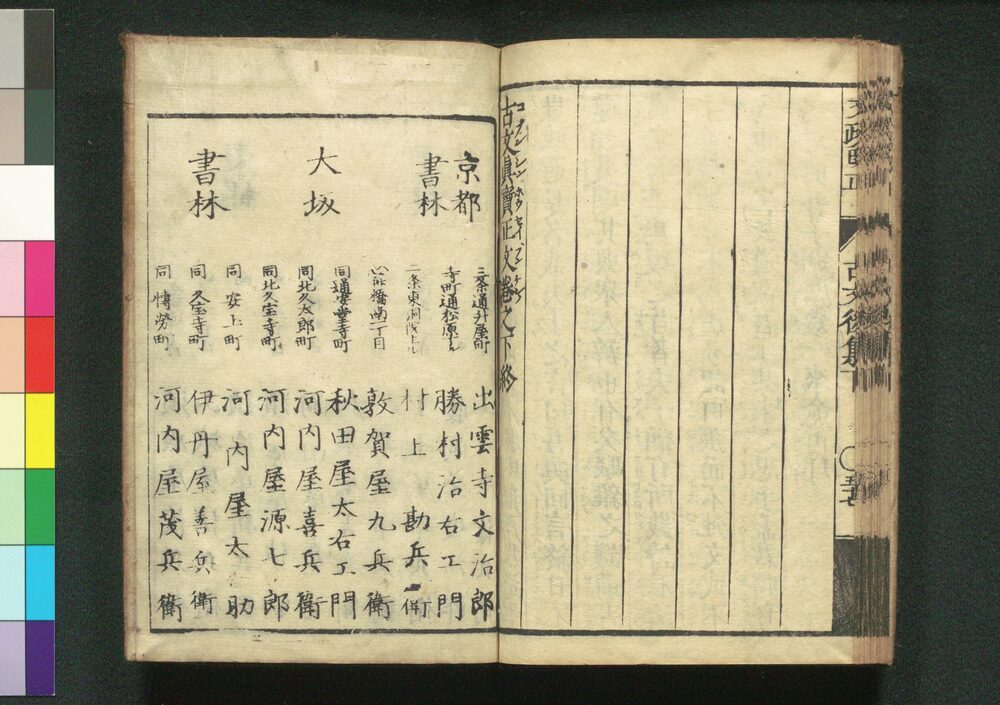 文政
古文後集下
古文眞實正文卷之下終
コブンシンホウセイブン
京都
書林
三条通升屋町
出雲寺文治郎
寺町通松原上ル
勝村治右エ門
二条東洞院上ル
村上勘兵衛
心斎橋南一丁目
敦賀屋九兵衛
同通安堂寺町
秋田屋太右エ門
大坂
書林
同北久太郎町
河内屋喜兵衛
同北久宝寺町
河内屋源七郎
同安土町
河内屋太助
同久宝寺町
伊丹屋善兵衛
同博労町
河内屋茂兵衛